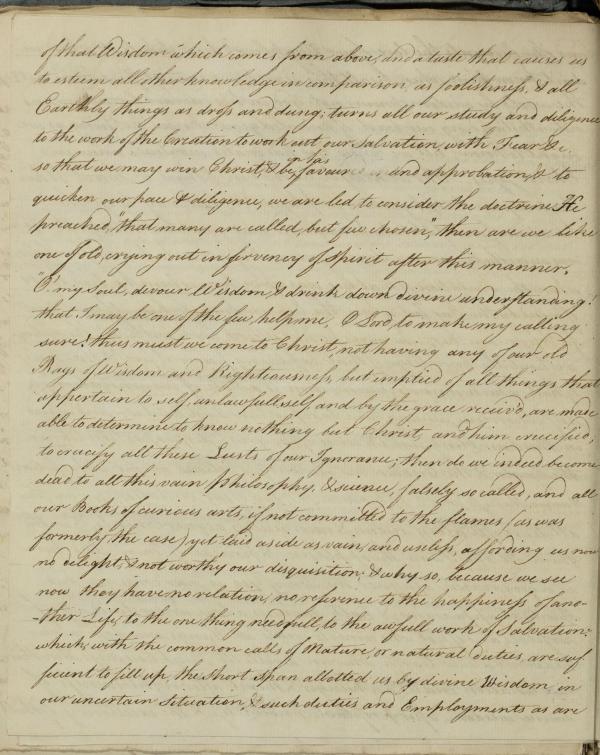 of that Wisdom which comes from above, and a taste that causes us
to esteem all other knowledge in comparison, as foolishness, & all
Earthly things as dross and dung; turns all our study and diligence
to the work of the Creation to work out our salvation with Fear &c.
so that we may win Christ, & be in his favour and approbation, & to
quicken our pace & diligence, we are led to consider the doctrine He
preached, "that many are called, but few chosen", then are we like
one of old, crying out in fervency of Spirit after this manner.
"O! my Soul, devour Wisdom, & drink down divine understanding!
that I may be one of the few, help me, O Lord, to make my calling
sure! thus must we come to Christ, not having any of our old
Rags of Wisdom and Righteousness, but emptied of all things that
appertain to self, unlawfull self and by the grace receiv'd, are made
able to determine to know nothing but Christ, and him crucified,
to crucify all these Lusts of our Ignorance; then do we indeed become
dead to all this vain Philosophy, & science, falsely so called, and all
our Books of curious arts, if not committed to the flames (as was
formerly the case) yet laid aside as vain, and useless, affording us now
no delight, & not worthy our disquisition; & why so, because we see
now they have no relation, no reference to the happiness of ano-
-ther Life, to the one thing needfull, to the awfull work of Salvation:
which, with the common calls of Nature, or natural duties, are suf
ficient to fill up, the short span allotted us by divine Wisdom, in
our uncertain situation, & such duties and Employments as are